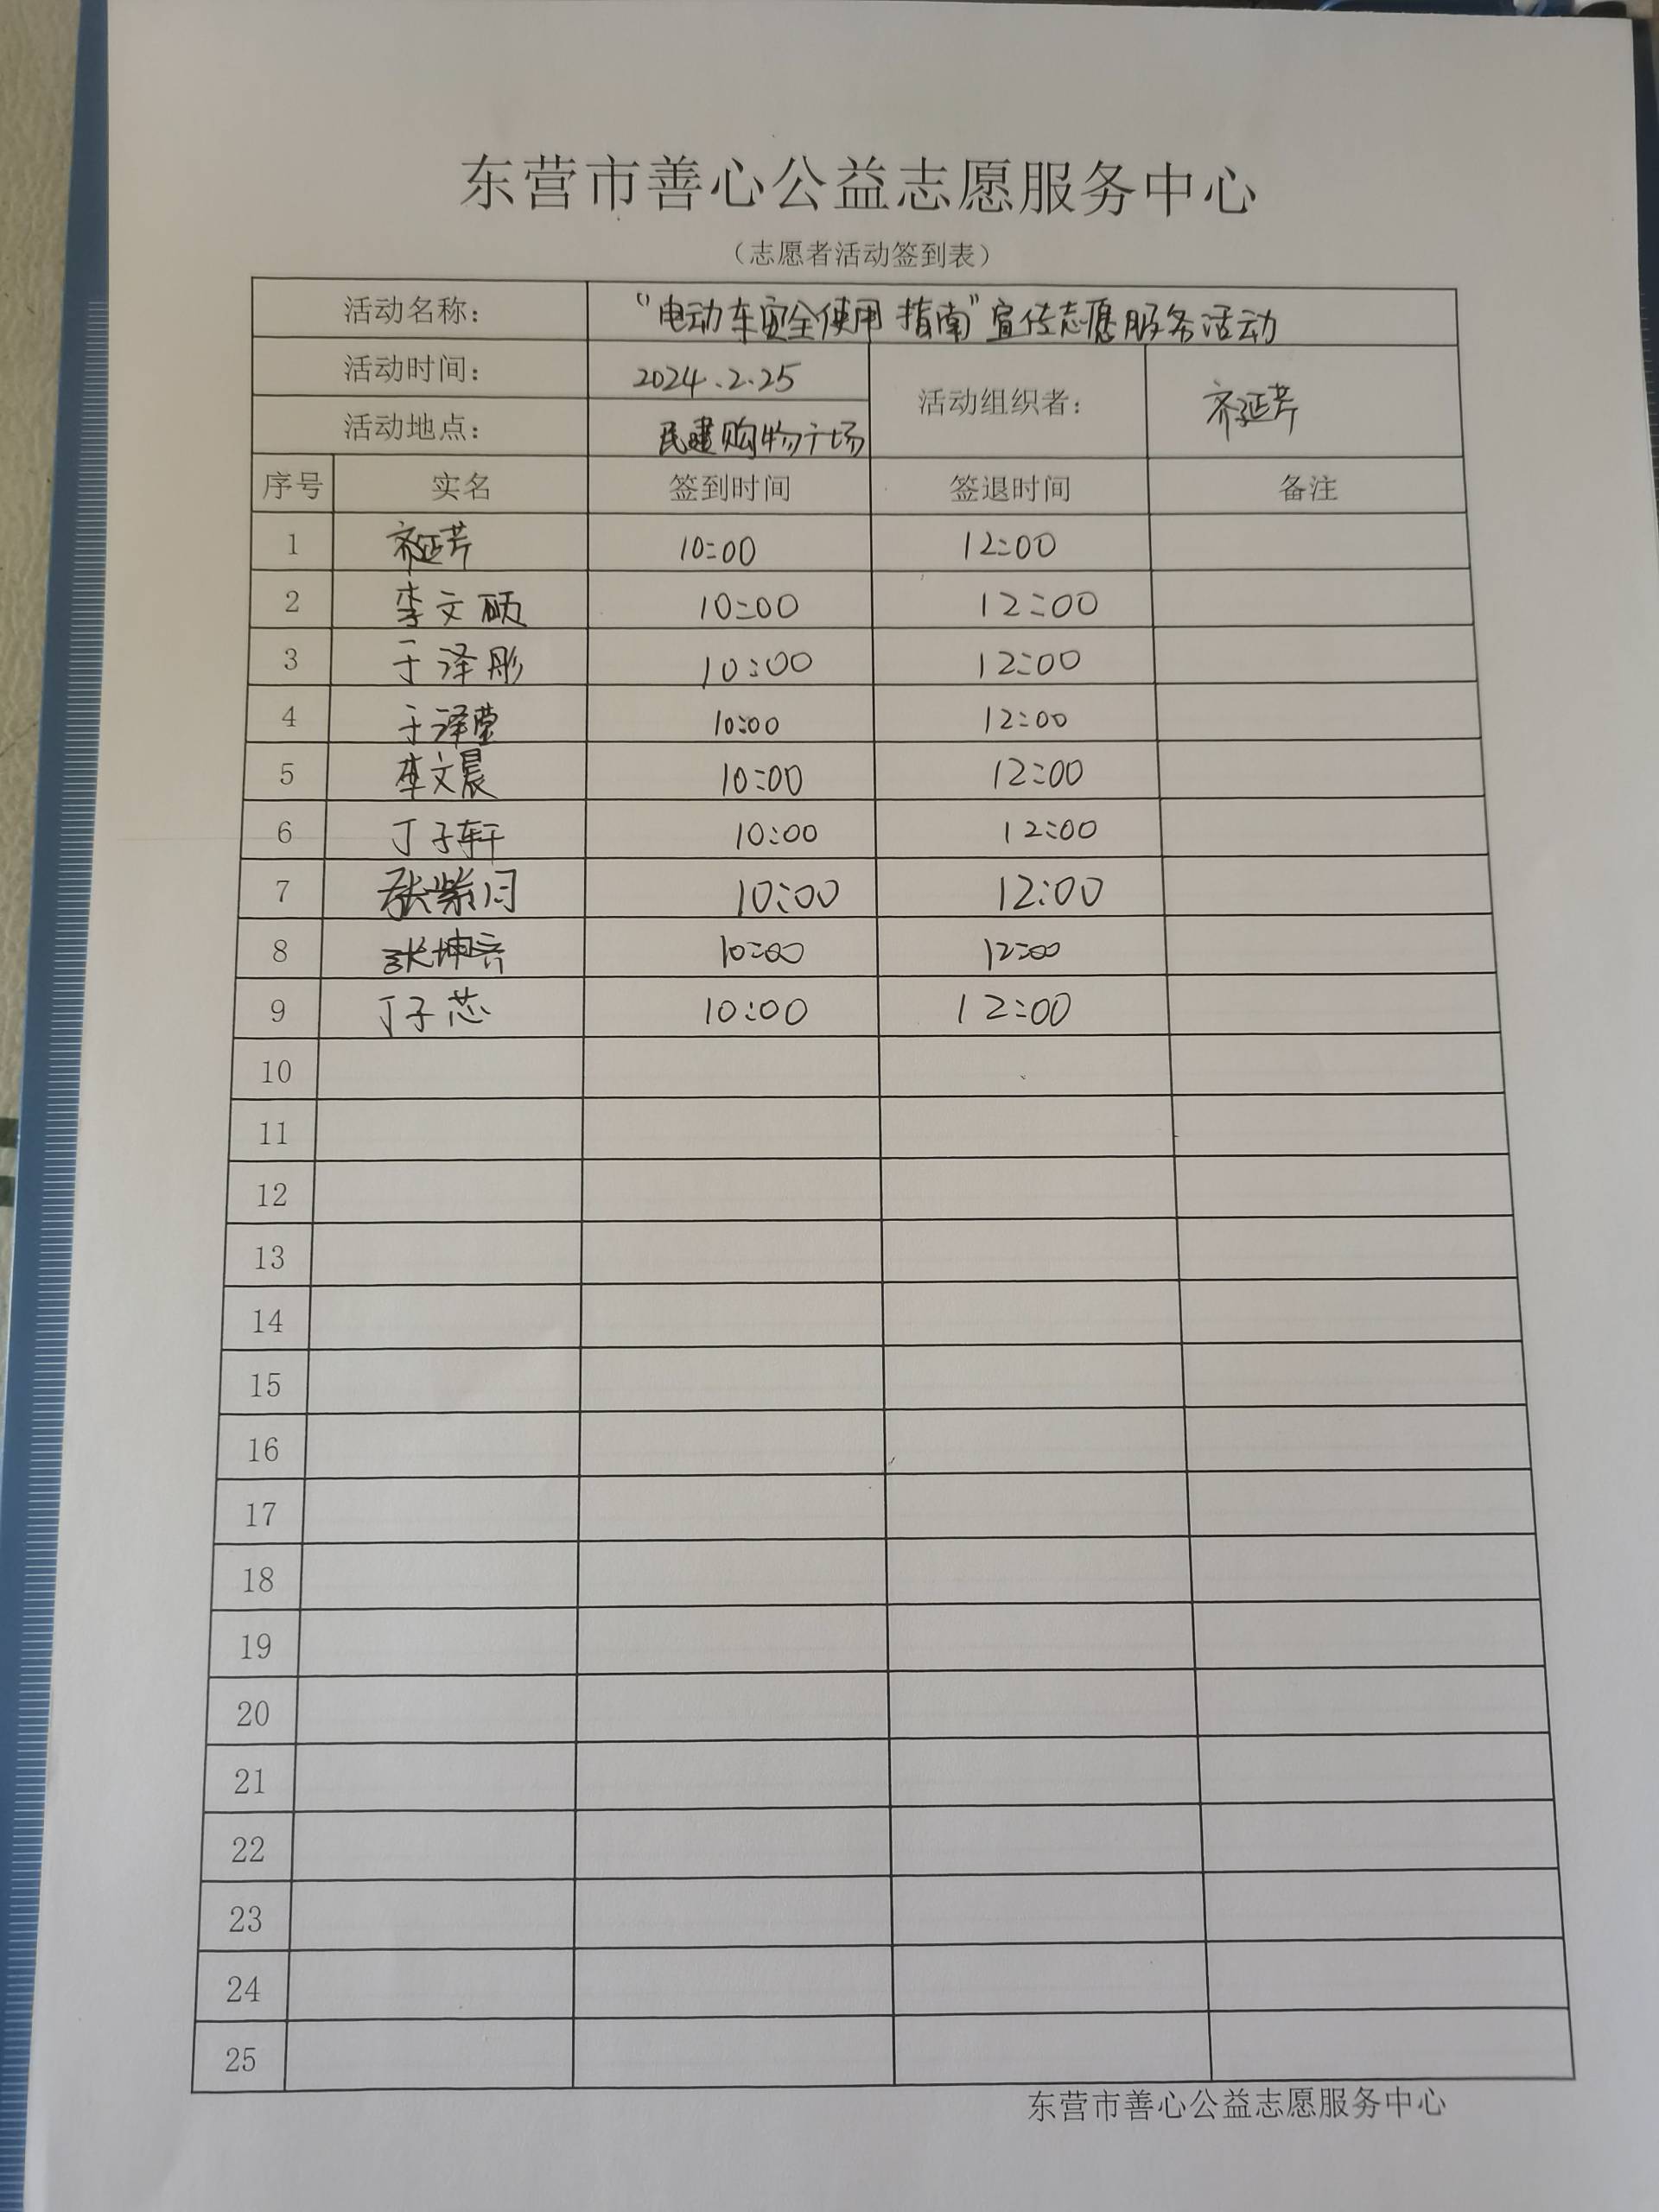 东营市善心公益志愿服务中心
（志愿者活动签到表）
活动名称： “电动车安全使用指南”宣传志愿服务活动
活动时间： 2024.2.25 活动组织者： 齐延芹
活动地点： 民建购物广场
序号 实名 签到时间 签退时间 备注
1 齐延芹 10:00 12:00
2 李文硕 10:00 12:00
3 于泽彤 10:00 12:00
4 于泽莹 10:00 12:00
5 李文晨 10:00 12:00
6 丁子轩 10:00 12:00
7 张紫 10:00 12:00
8 张坤 10:00 12:00
9 丁子芯 10:00 12:00
10
11
12
13
14
15
16
17
18
19
20
21
22
23
24
25
东营市善心公益志愿服务中心